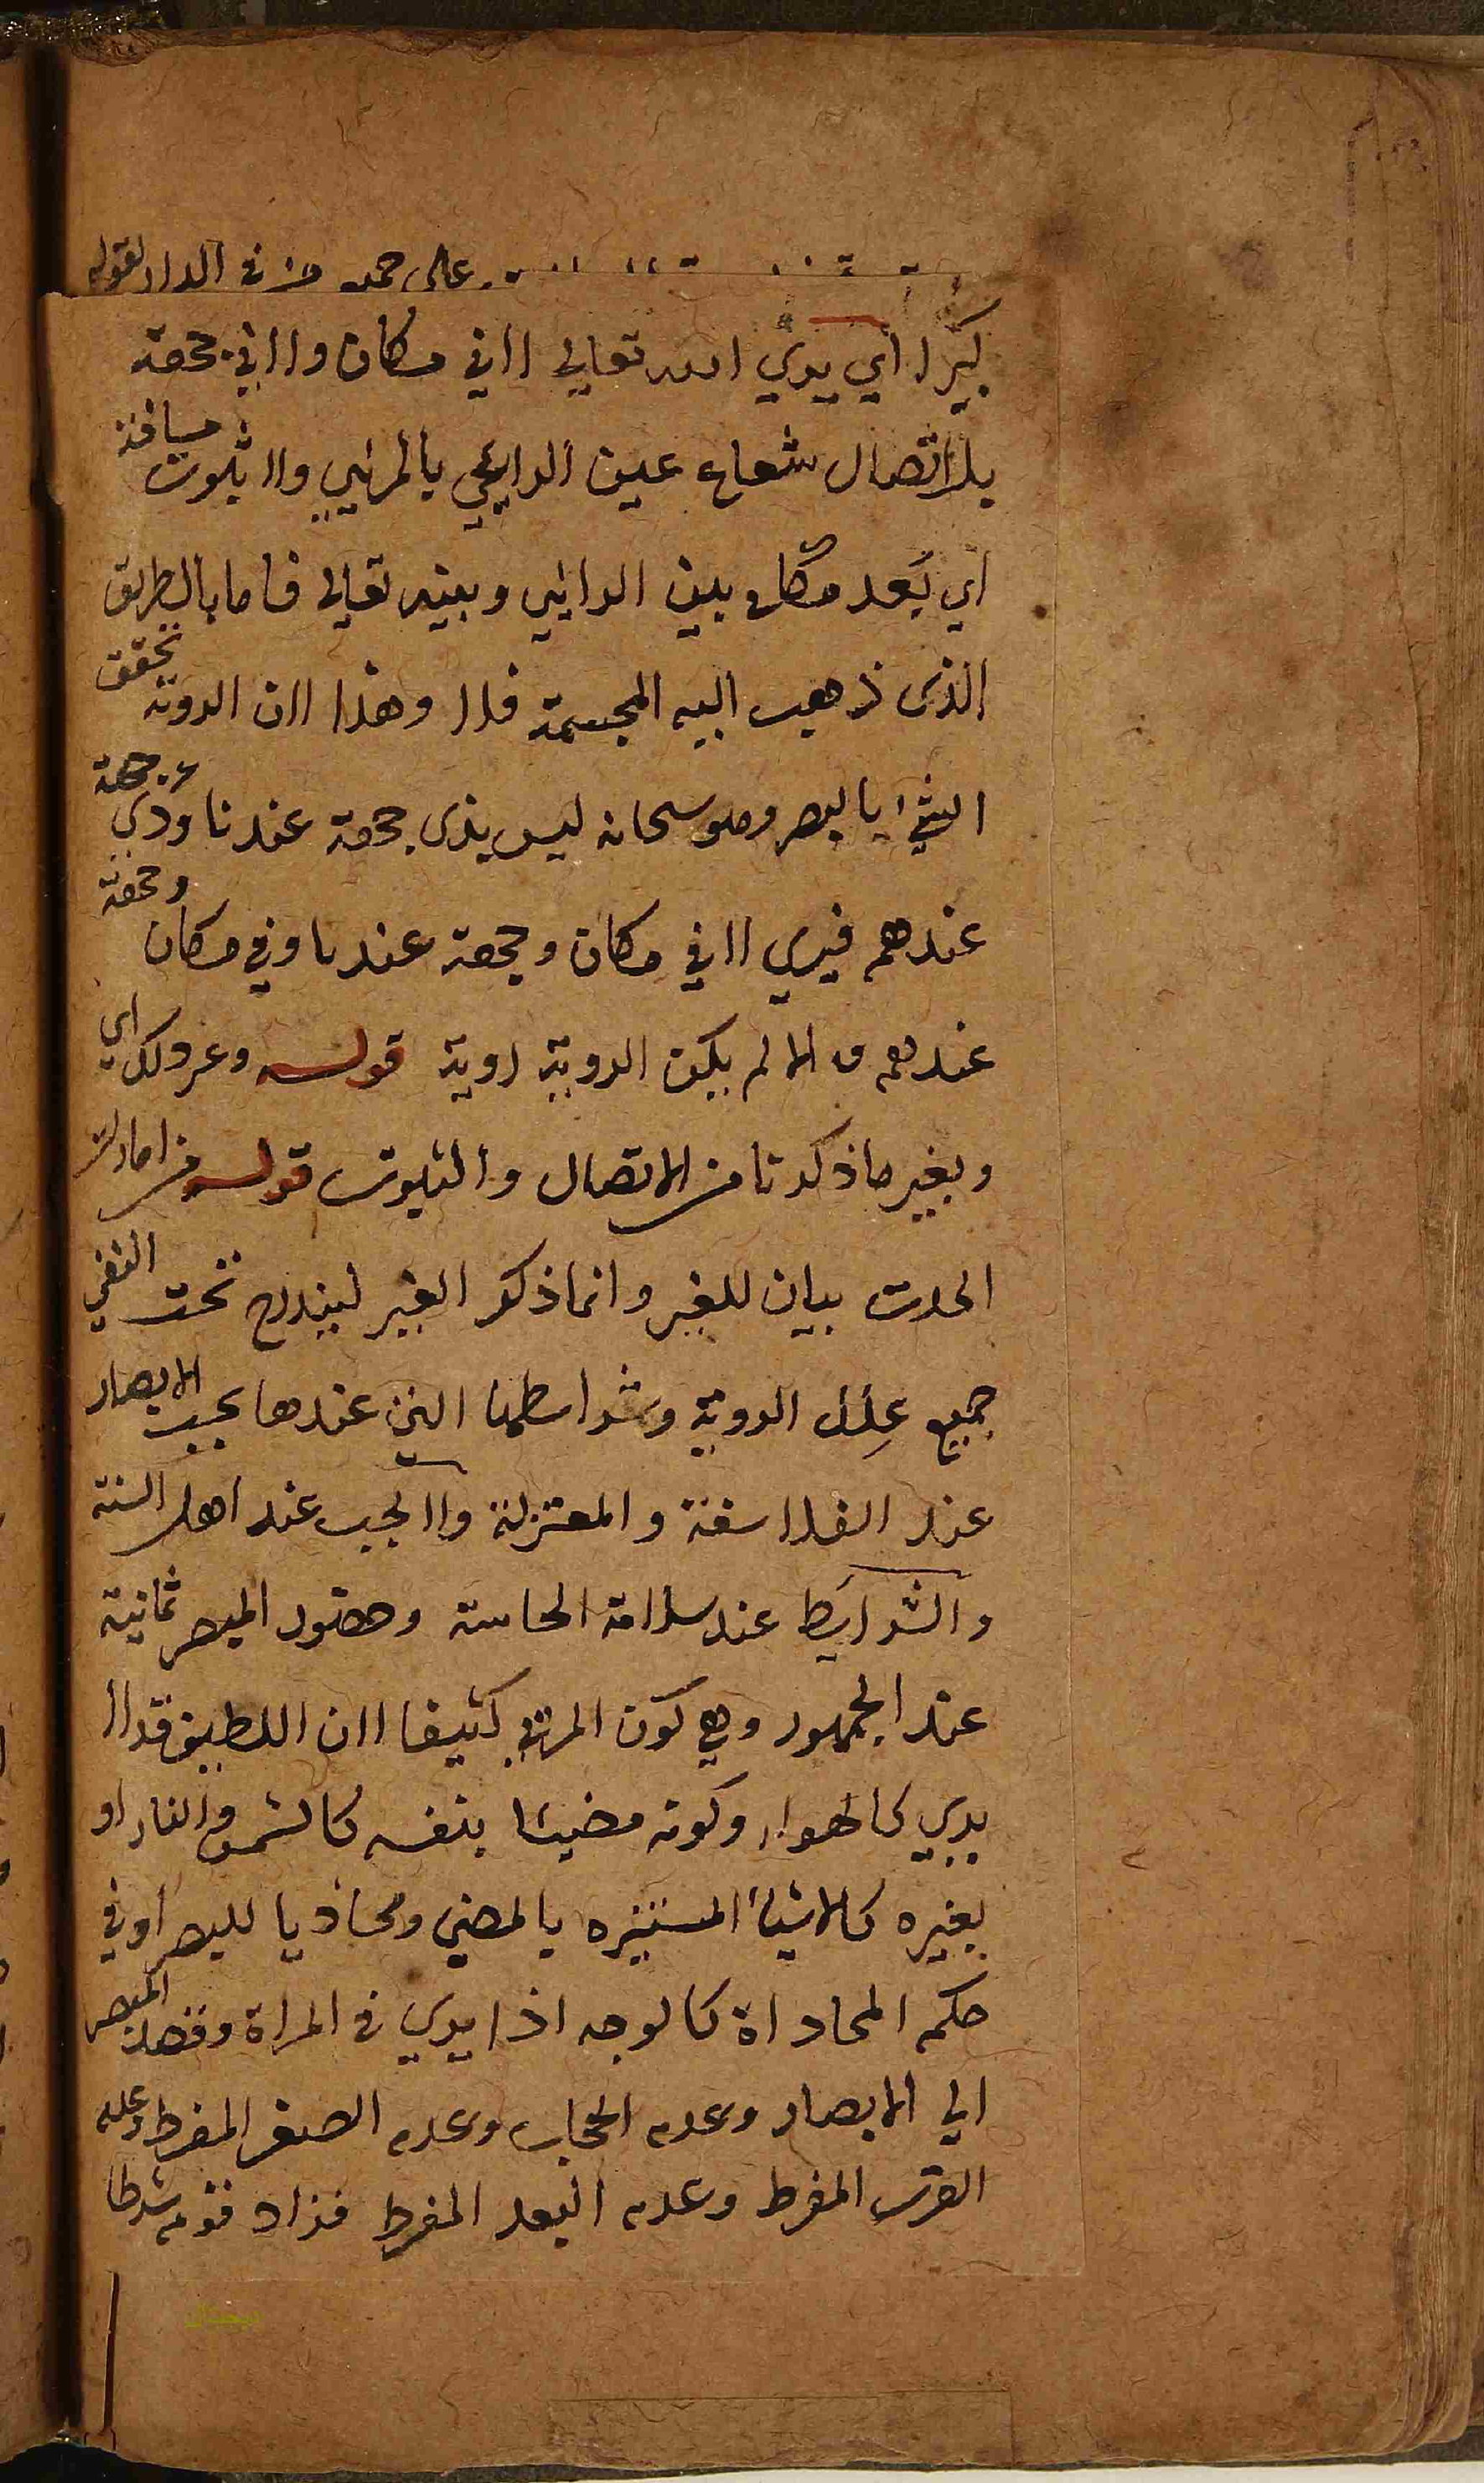 على حمد من في الدار لقوله
فيرى اي يري الله تعالي لا في مكان ولا في جهة
بلا اتصال شعاع عين الرايي بالمرئيي ولا ثبوت مسافة
اي بعد مكان بين الرايي وبينه تعالي فاما بالطريق
الذى ذهب اليه المجسمة فلا وهذا لان الروية تحقق
الشئ بالبصر وهو سبحانه ليس بذى جهة عندنا وذي جهة
عندهم فيري لا في مكان وجهة عندنا وفي مكان وجهة
عندهم والا لم يكن الروية روية قوله وغير ذلك اي
وبغير ما ذكرنا من الاتصال والثبوت قوله من امارات
الحدث بيان للغير وانما ذكر الغير ليندرج تحت النفي
جميع علل الروية وشرايطها التي عندها يجب الابصار
عند الفلاسفة والمعتزلة ولا يجب عند اهل السنة
والشرايط عند سلامة الحاسة وحضور المبصر ثمانية
عند الجمهور وهي كون المرئي كثيفا لان اللطيف قد لا
يري كالهواء وكونه مضيئا بنفسه كالشمس والنار او
بغيره كالاشياء المستنيره بالمضي ومحاذيا للبصر او في
حكم المحاذاة كالوجه اذا يري في المراة وقصد المبصر
الي الابصار وعدم الحجاب وعدم الصغر المفرط وعدم
القرب المفرط وعدم البعد المفرط فزاد قوم شرطا